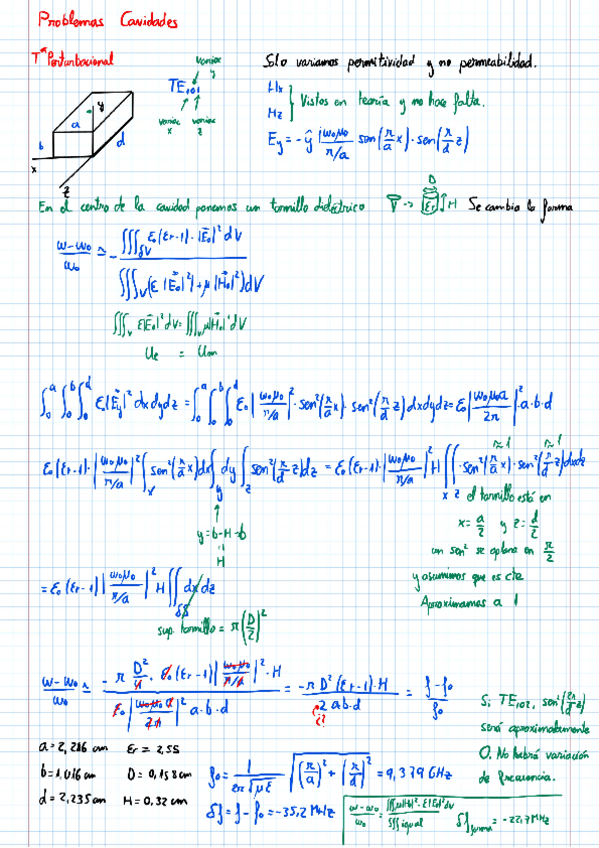 Problemas Cavidades
Tª Perturbacional
TE₁₀₁
variac y
variac x
variac z
Sólo variamos permitividad y no permeabilidad.
Hx
Hz } Vistos en teoría y no hace falta.
Ey = -ŷ jω₀μ₀/(π/a) sen(π/a x) · sen(π/d z)
a
b
d
x
y
z
En el centro de la cavidad ponemos un tornillo dieléctrico → D εr H Se cambia la forma
(ω-ω₀)/ω₀ ≈ - ∭δV ε₀(εr-1)·|E₀|² dV / ∭V (ε|E₀|² + μ|H₀|²) dV
∭V ε|E₀|² dV = ∭V μ|H₀|² dV
Ue = Um
∫₀ᵃ ∫₀ᵇ ∫₀ᵈ ε₀|Ey|² dxdydz = ∫₀ᵃ ∫₀ᵇ ∫₀ᵈ ε₀ |ω₀μ₀/(π/a)|² · sen²(π/a x) · sen²(π/d z) dxdydz = ε₀ |ω₀μ₀a/2π|² · a·b·d
ε₀(εr-1)·|ω₀μ₀/(π/a)|² ∫x sen²(π/a x) dx ∫y dy ∫z sen²(π/d z) dz = ε₀(εr-1)·|ω₀μ₀/(π/a)|² H ∬xz sen²(π/a x) · sen²(π/d z) dxdz
≈1 ≈1
y = b-H → b
H
el tornillo está en
x = a/2 y z = d/2
un sen² se aplana en π/2
y asumimos que es cte
Aproximamos a 1
= ε₀(εr-1) |ω₀μ₀/(π/a)|² H ∬δS dxdz
sup tornillo = π(D/2)²
(ω-ω₀)/ω₀ ≈ -π D²/4 · ε₀(εr-1) |ω₀μ₀/(π/a)|² · H / ε₀ |ω₀μ₀a/2π|² a·b·d = -π D²(εr-1)·H / 2 a·b·d = (f-f₀)/f₀
¿?
Si TE₁₀₂, sen²(2π/d z)
será aproximadamente
0. No habrá variación
de frecuencia.
a = 2,286 cm εr = 2,55
b = 1,016 cm D = 0,158 cm
d = 2,235 cm H = 0,32 cm
f₀ = 1/(2π√με) √((π/a)² + (π/d)²) = 9,379 GHz
δf = f - f₀ = -35,2 MHz
(ω-ω₀)/ω₀ = ∭ μ|H₀|² - ε|E₀|² dV / ∭ igual
δf forma = -22,7 MHz